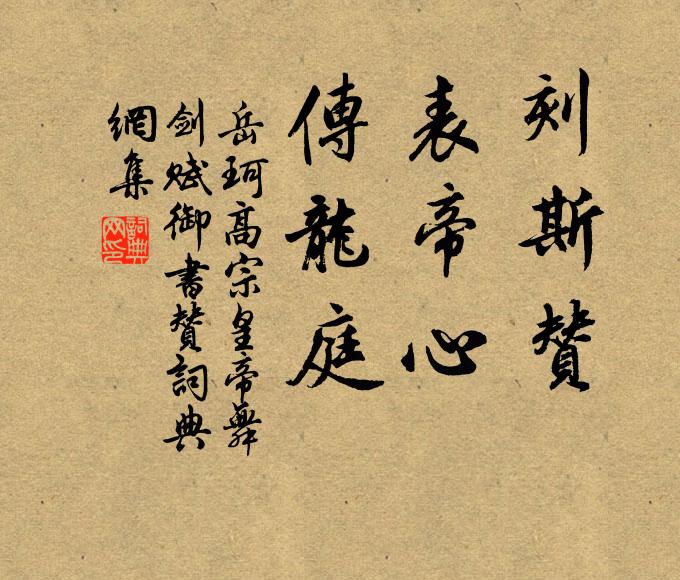 刻斯贊
表帝心
傳龍庭
岳珂高宗皇帝舞
劍賦御書贊詞典
網集
詞典
网印